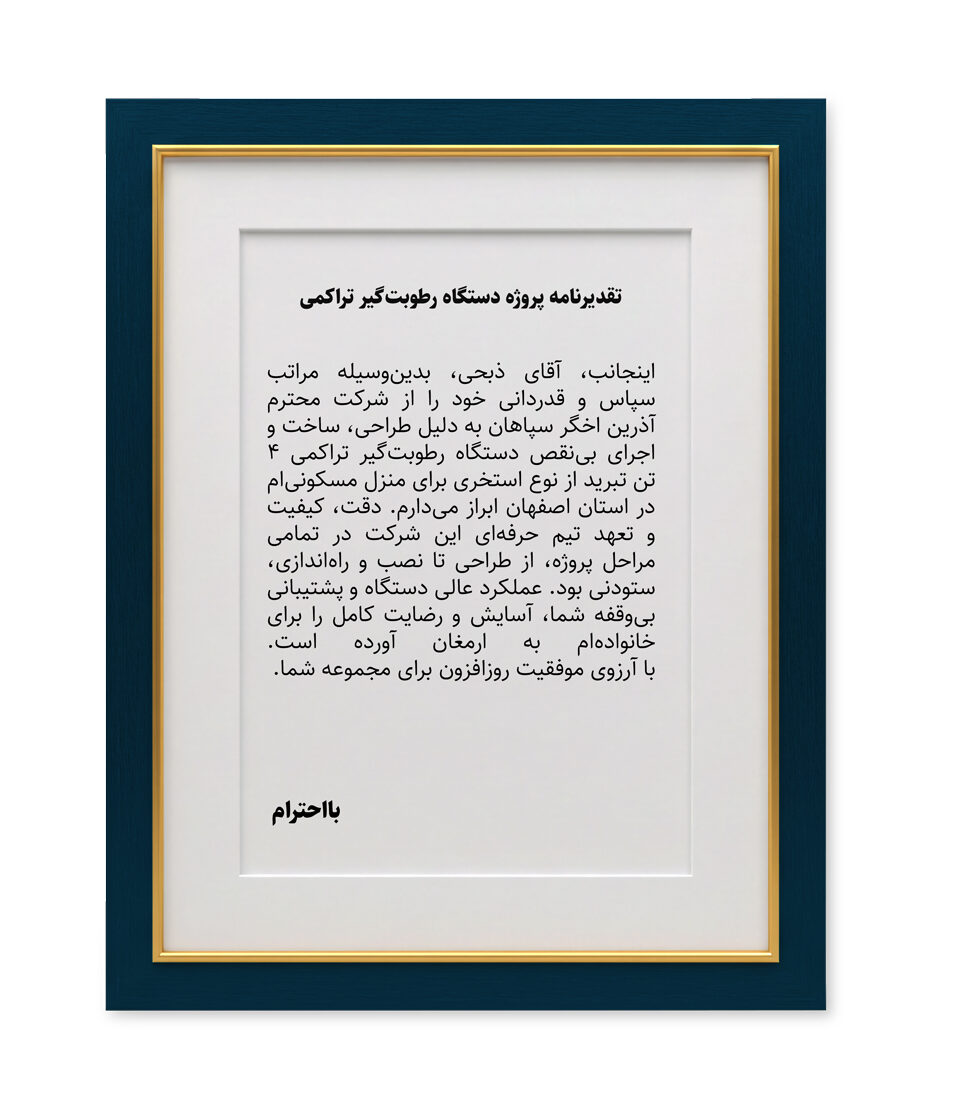 تقدیرنامه پروژه دستگاه رطوبت‌گیر تراکمی
اینجانب، آقای ذبحی، بدین‌وسیله مراتب
سپاس و قدردانی خود را از شرکت محترم
آذرین اخگر سپاهان به دلیل طراحی، ساخت و
اجرای بی‌نقص دستگاه رطوبت‌گیر تراکمی ۴
تن تبرید از نوع استخری برای منزل مسکونی‌ام
در استان اصفهان ابراز می‌دارم. دقت، کیفیت
و تعهد تیم حرفه‌ای این شرکت در تمامی
مراحل پروژه، از طراحی تا نصب و راه‌اندازی،
ستودنی بود. عملکرد عالی دستگاه و پشتیبانی
بی‌وقفه شما، آسایش و رضایت کامل را برای
خانواده‌ام به ارمغان آورده است.
با آرزوی موفقیت روزافزون برای مجموعه شما.
بااحترام